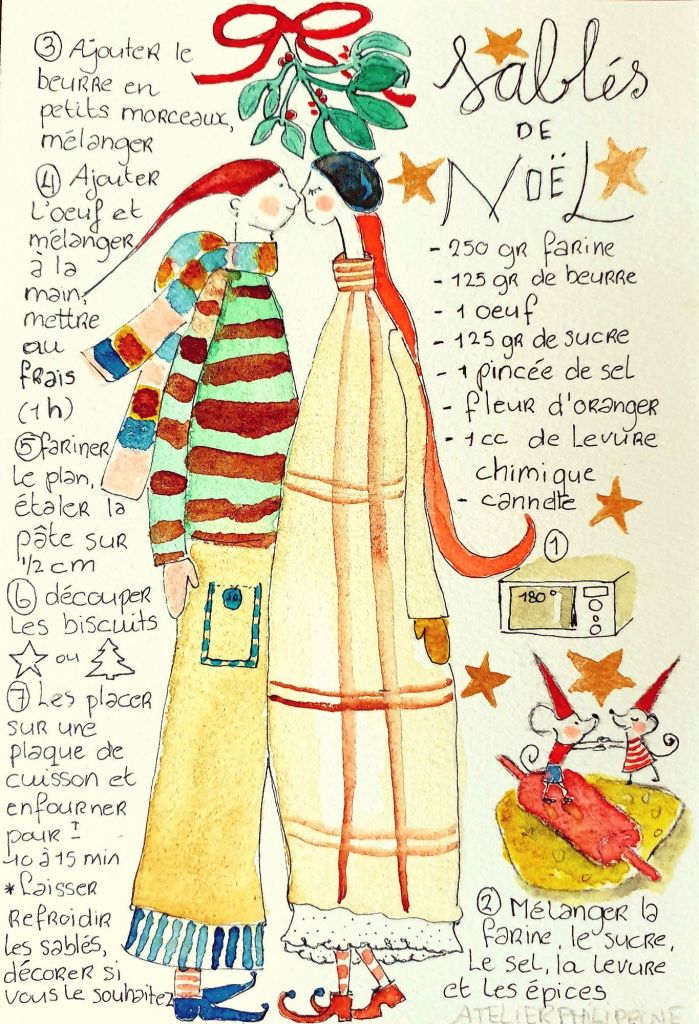 Sablés
DE
NOËL
- 250 gr farine
- 125 gr de beurre
- 1 oeuf
- 125 gr de sucre
- 1 pincée de sel
- fleur d'oranger
- 1 cc de levure
chimique
- cannelle
①
180°
② Mélanger la
farine, le sucre,
Le sel, la levure
et les épices
③ Ajouter le
beurre en
petits morceaux,
mélanger
④ Ajouter
L'oeuf et
mélanger
à la
main,
mettre
au
frais
(1h)
⑤ fariner
Le plan,
étaler la
pâte sur
1/2 cm
⑥ découper
Les biscuits
ou
⑦ Les placer
sur une
plaque de
cuisson et
enfourner
pour ±
10 à 15 min
* Laisser
Refroidir
Les sablés,
décorer si
vous le souhaitez
ATELIER PHILIPPINE